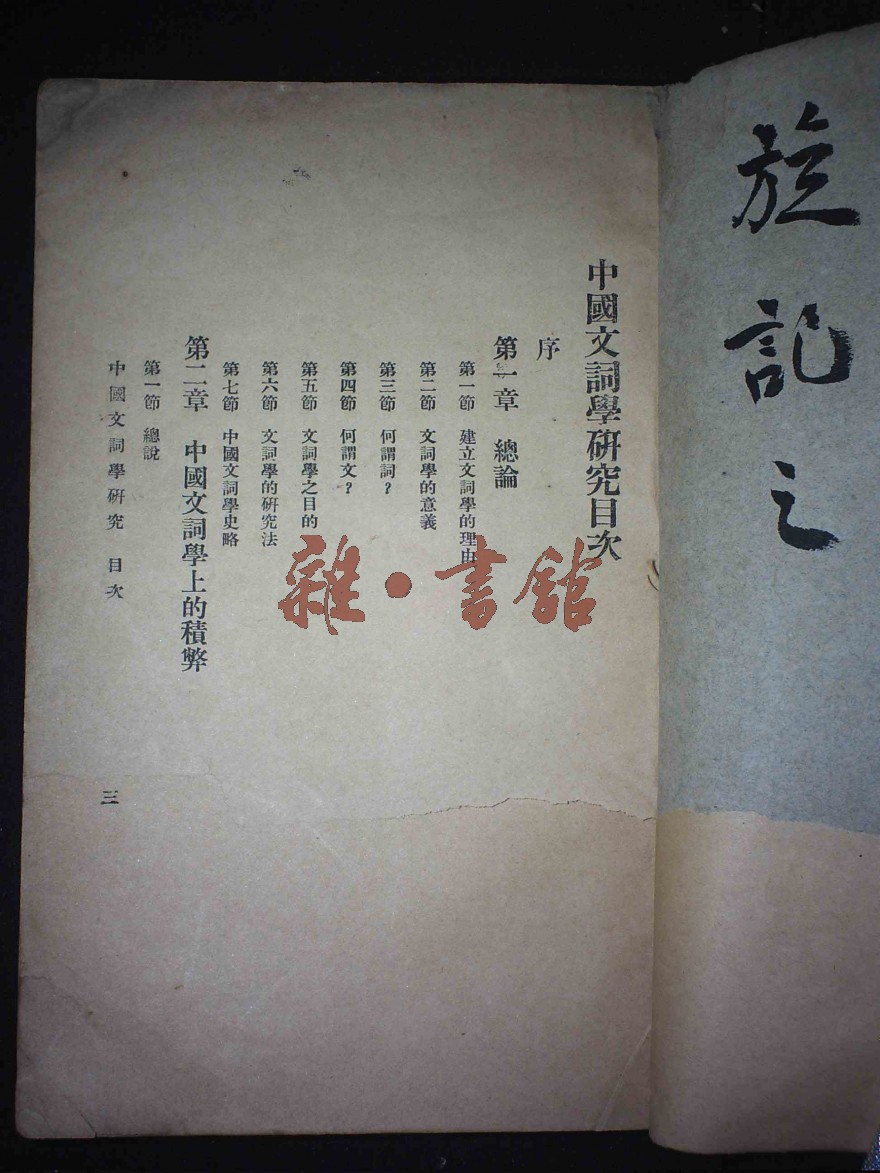 旋記之
中國文詞學研究目次
序
第一章　總論
第一節　建立文詞學的理由
第二節　文詞學的意義
第三節　何謂詞？
第四節　何謂文？
第五節　文詞學之目的
第六節　文詞學的研究法
第七節　中國文詞學史略
第二章　中國文詞學上的積弊
第一節　總說
中國文詞學研究　目次
三
雜·書館